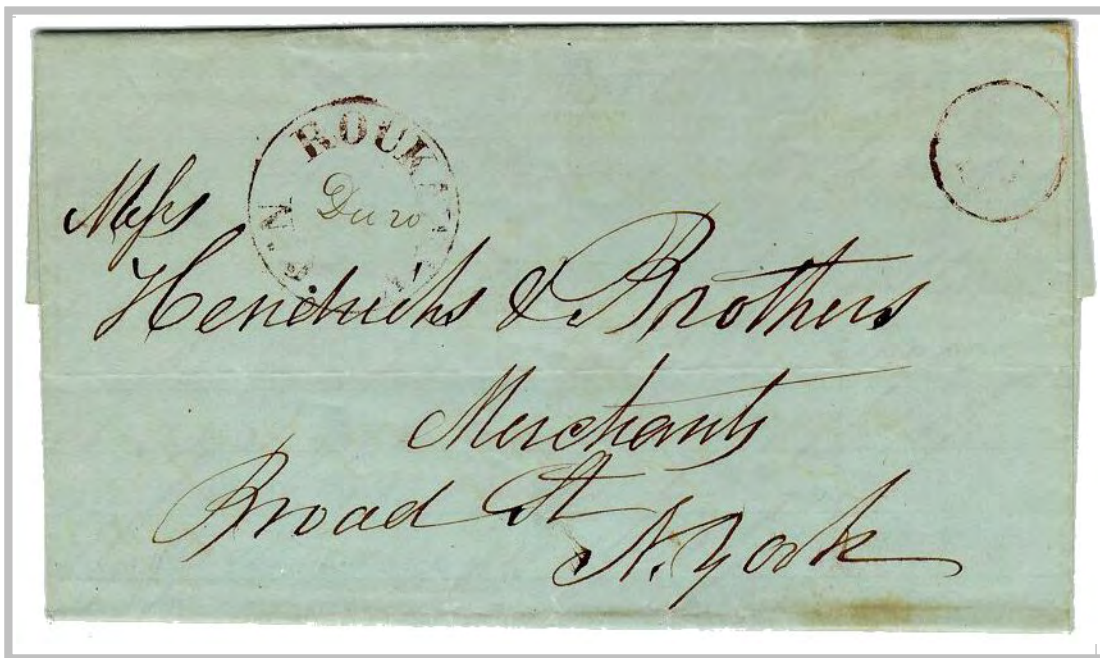 ROCKAWAY
N.J.
Dec 20
Mess
Hendricks & Brothers
Merchants
Broad St
N. York